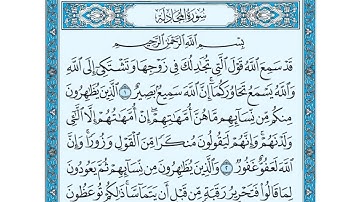 سُورَةُ المُجَادلَةِ
بِسْمِ اللَّهِ الرَّحْمَٰنِ الرَّحِيمِ
قَدْ سَمِعَ اللَّهُ قَوْلَ الَّتِي تُجَٰدِلُكَ فِي زَوْجِهَا وَتَشْتَكِي إِلَى اللَّهِ
وَاللَّهُ يَسْمَعُ تَحَاوُرَكُمَا إِنَّ اللَّهَ سَمِيعٌ بَصِيرٌ ١ الَّذِينَ يُظَٰهِرُونَ
مِنكُم مِّن نِّسَآئِهِم مَّا هُنَّ أُمَّهَٰتِهِمْ إِنْ أُمَّهَٰتُهُمْ إِلَّا الَّٰٓـِٔي
وَلَدْنَهُمْ وَإِنَّهُمْ لَيَقُولُونَ مُنكَرًا مِّنَ الْقَوْلِ وَزُورًا وَإِنَّ
اللَّهَ لَعَفُوٌّ غَفُورٌ ٢ وَالَّذِينَ يُظَٰهِرُونَ مِن نِّسَآئِهِمْ ثُمَّ يَعُودُونَ
لِمَا قَالُوا فَتَحْرِيرُ رَقَبَةٍ مِّن قَبْلِ أَن يَتَمَآسَّا ذَٰلِكُمْ تُوعَظُونَ